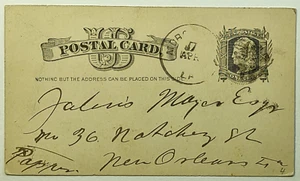 POSTAL CARD
17
APR
LA
NOTHING BUT THE ADDRESS CAN BE PLACED ON THIS
Mayer Esqr
No 36 Natchez St
New Orleans La